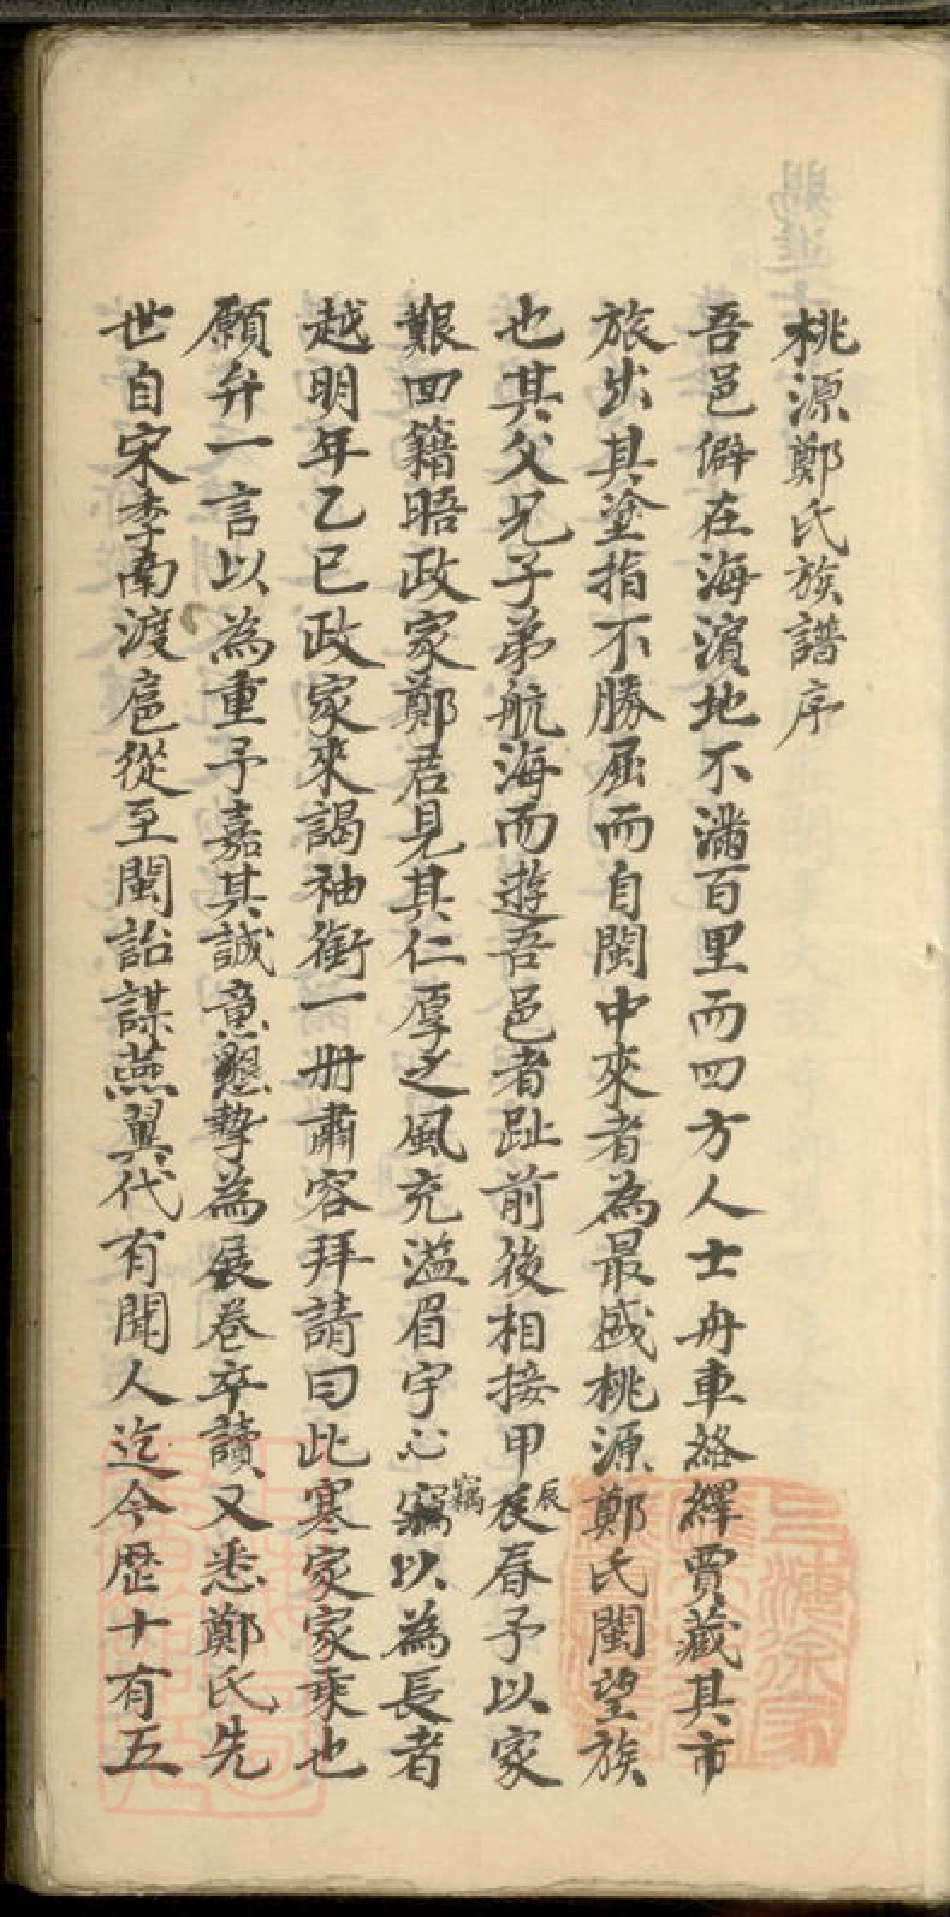 桃源鄭氏族譜序
吾邑僻在海濱地不滿百里而四方人士舟車絡繹賈藏其市
旅出其塗指不勝屈而自閩中來者為最盛桃源鄭氏閩望族
也其父兄子弟航海而遊吾邑者趾前後相接甲辰春予以家
艱回籍晤政家鄭君見其仁厚之風充溢眉宇心竊以為長者
越明年乙巳政家來謁袖銜一冊肅容拜請曰此寒家家乘也
願弁一言以為重予嘉其誠意懇摯為展卷卒讀又悉鄭氏先
世自宋季南渡扈從至閩詒謀燕翼代有聞人迄今歷十有五
辰
竊